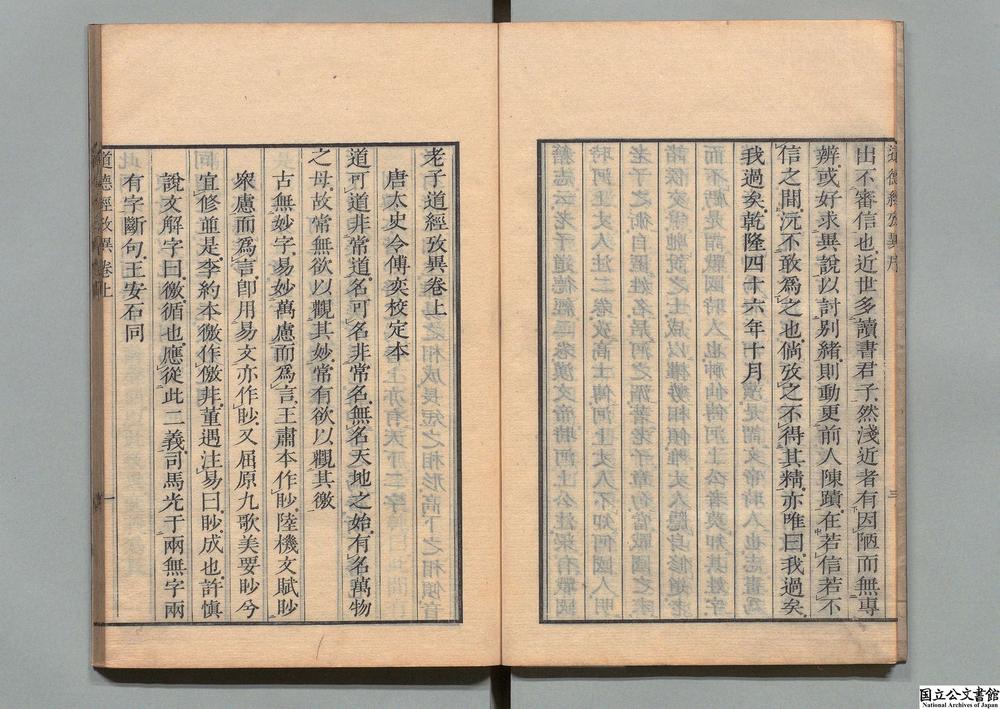 道德經攷異序
三
出不審信也近世多讀書君子然淺近者有因陋而無專
辨或好求異說以討別緒則動更前人陳蹟在若信若不
信之間沅不敢爲之也倘攷之不得其精亦唯曰我過矣
我過矣乾隆四十六年十月
老子道經攷異卷上
唐太史令傅奕校定本
道可道非常道名可名非常名無名天地之始有名萬物
之母故常無欲以觀其妙常有欲以觀其徼
古無妙字易妙萬慮而爲言王肅本作眇陸機文賦眇
衆慮而爲言卽用易文亦作眇又屈原九歌美要眇兮
宜修並是李約本徼作儌非董遇注易曰眇成也許愼
說文解字曰徼循也應從此二義司馬光于兩無字兩
有字斷句王安石同
道德經攷異卷上
一
国立公文書館
National Archives of Japan